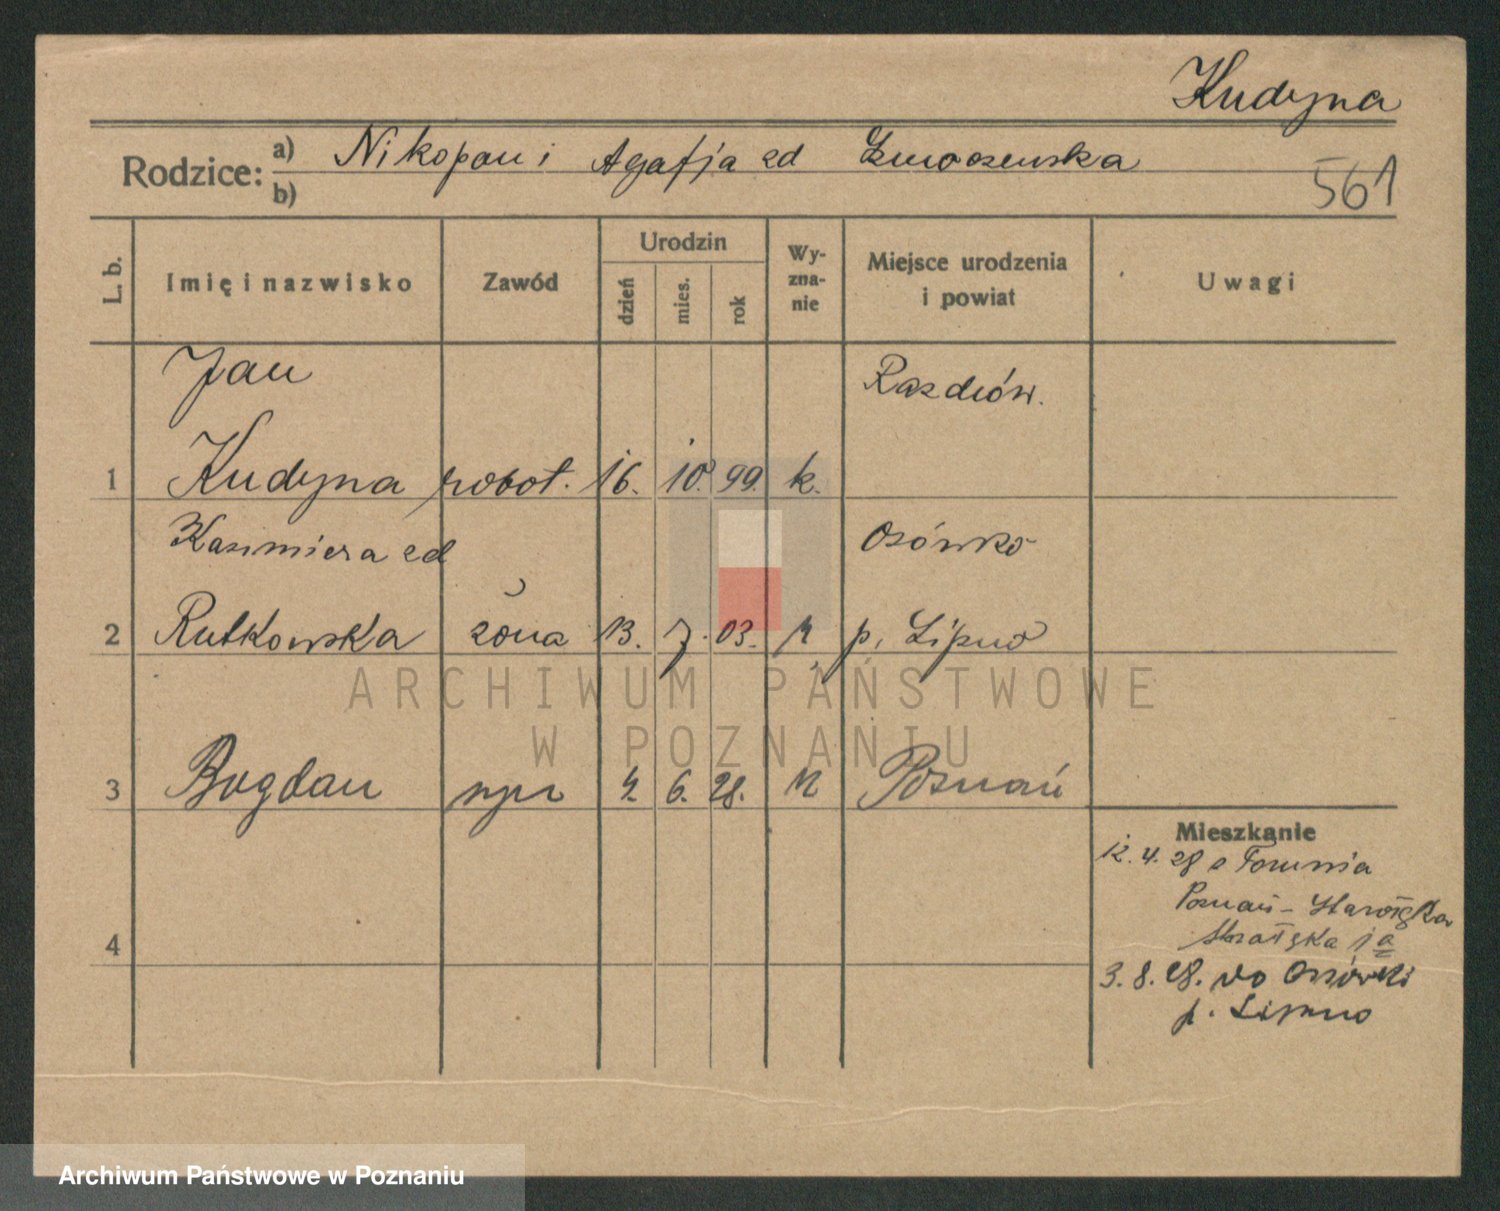 Kudyna
Rodzice: a) Nikopan i Agafja zd
b)
561
L. b. Imię i nazwisko Zawód Urodzin dzień mies. rok Wyznanie Miejsce urodzenia i powiat Uwagi
Jan
1 Kudyna robot. 16. 10. 99. k.
Kazimiera zd Osówko
2 Rutkowska żona 13. 7. 03. k p. Lipno
3 Bogdan 6. 28. Poznań
Mieszkanie
12. 4. 28 z Torunia
Poznań -
4
3. 8. 28. do Osówki
p. Lipno
ARCHIWUM PAŃSTWOWE
W POZNANIU
Archiwum Państwowe w Poznaniu